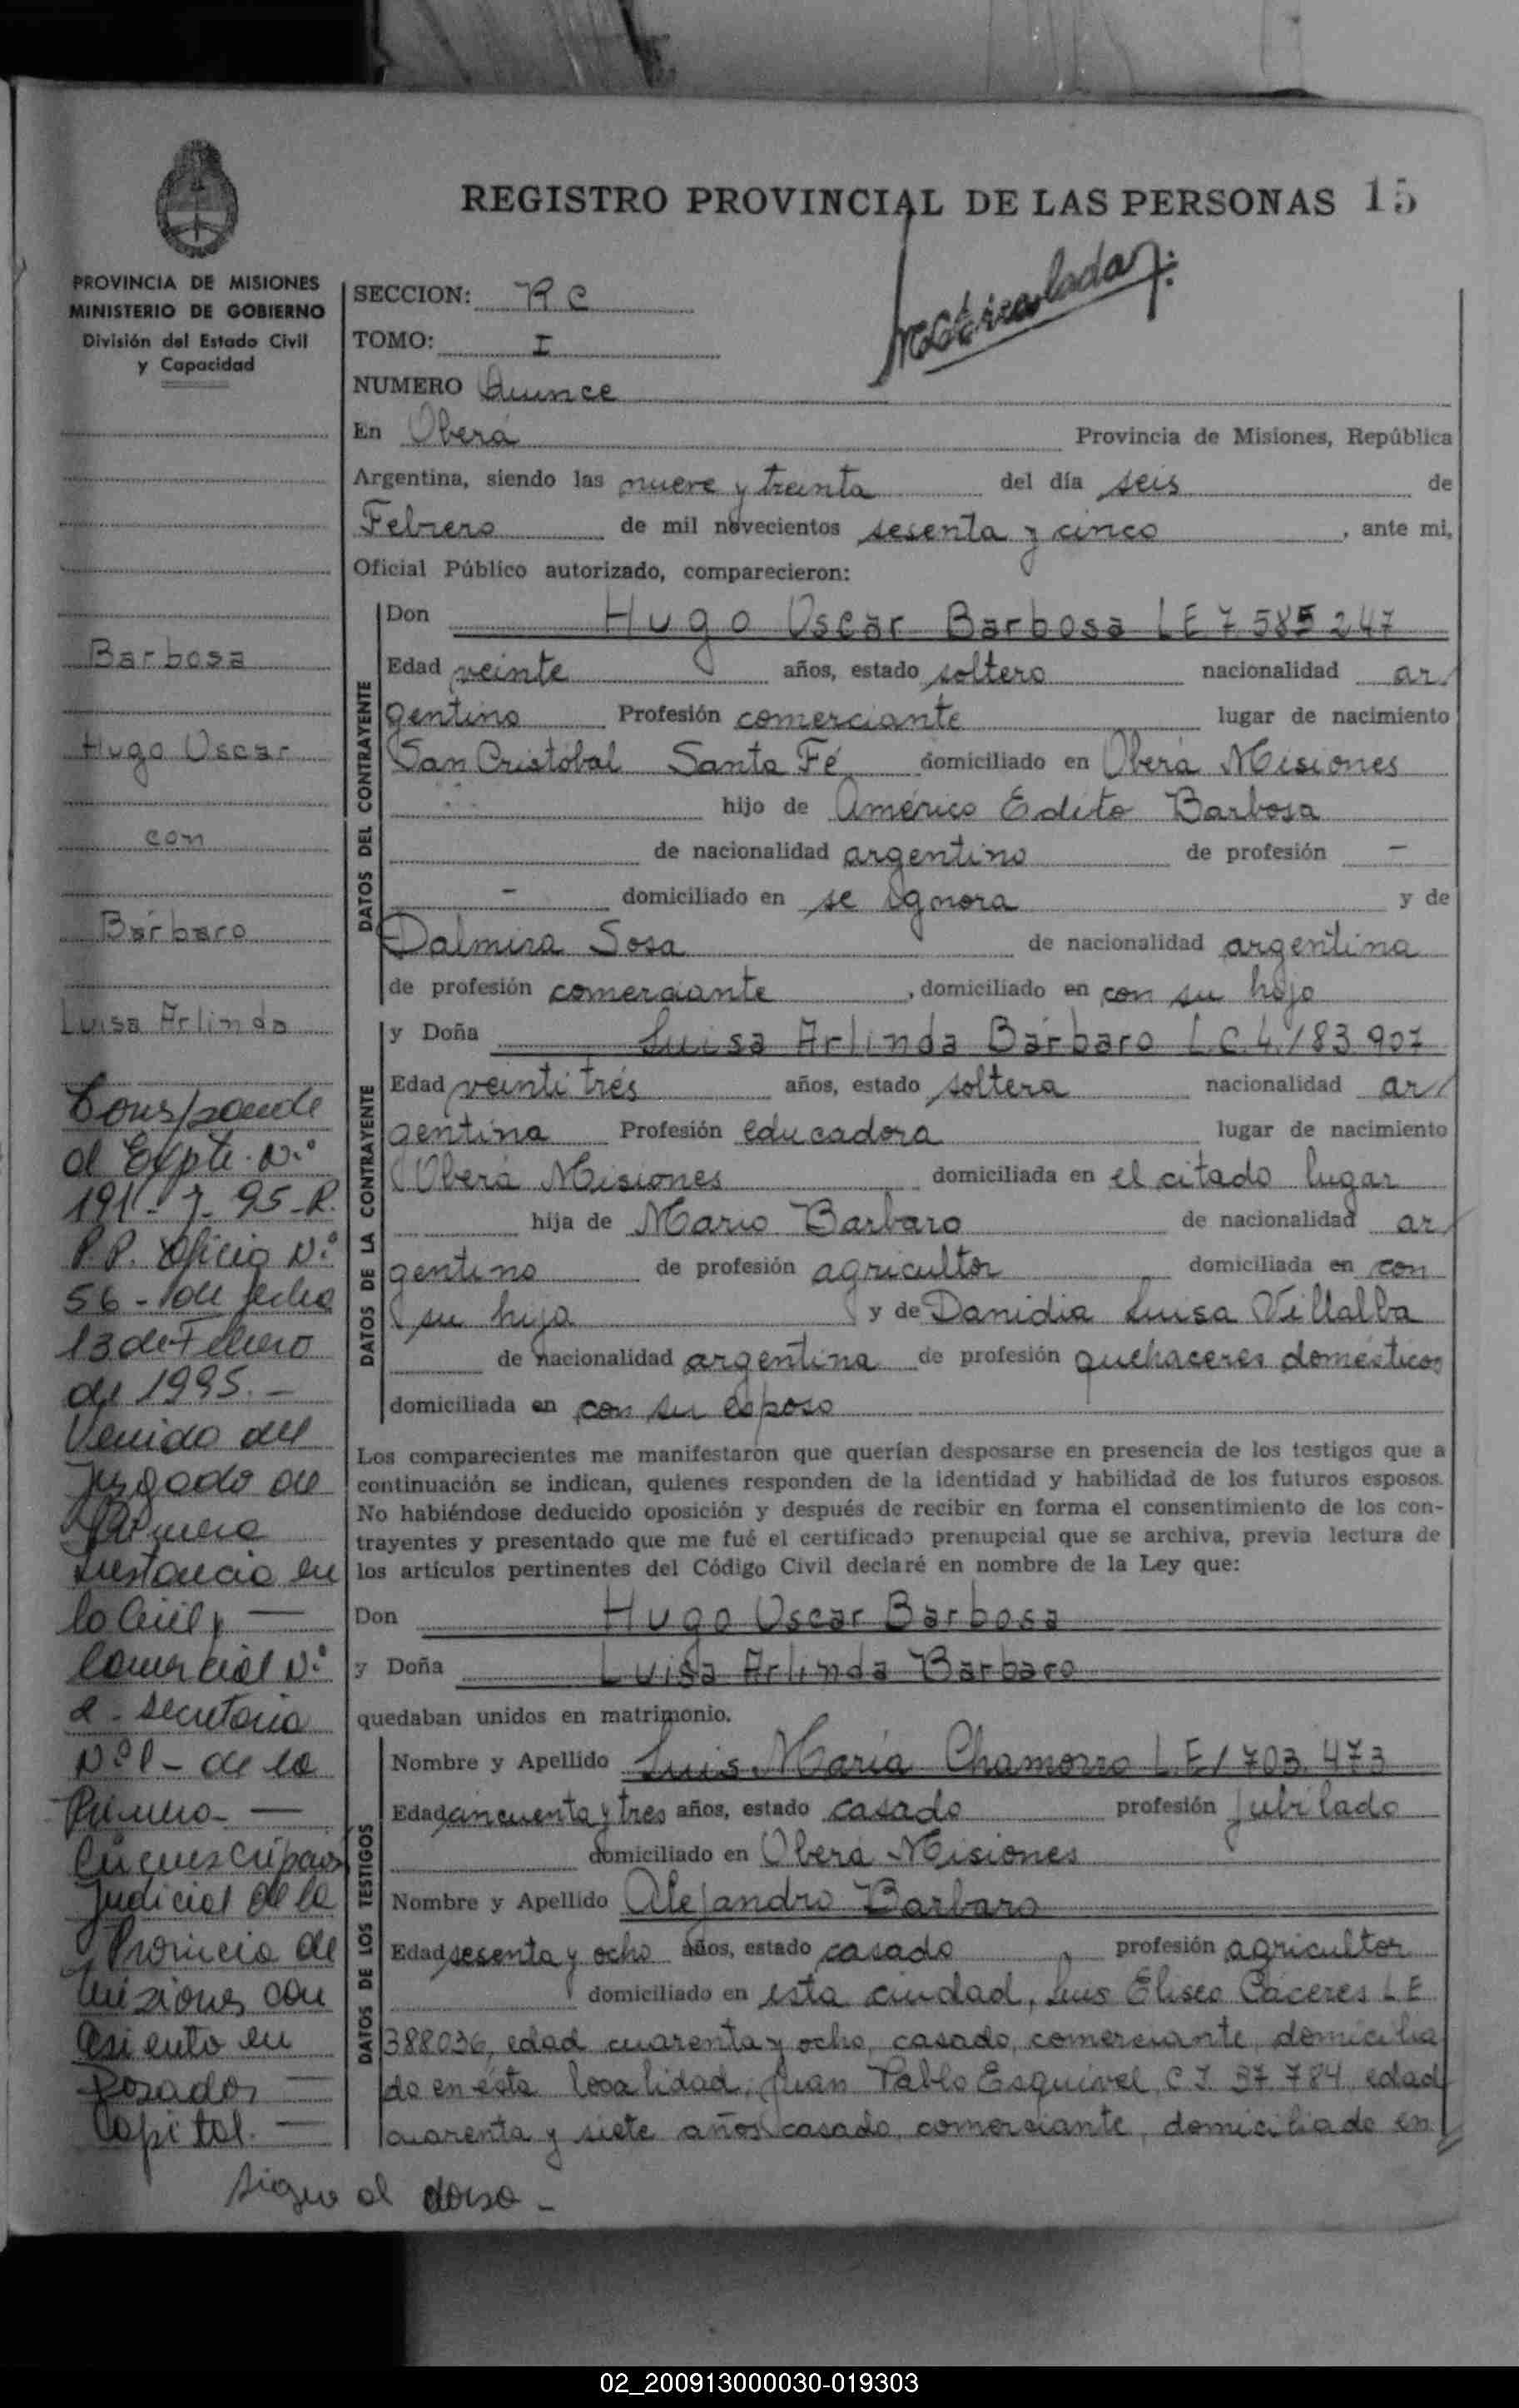 REGISTRO PROVINCIAL DE LAS PERSONAS 15
PROVINCIA DE MISIONES
MINISTERIO DE GOBIERNO
División del Estado Civil
y Capacidad
Matriculada
SECCION: R C
TOMO: I
NUMERO Quince
En Oberá Provincia de Misiones, República
Argentina, siendo las nueve y treinta del día seis de
Febrero de mil novecientos sesenta y cinco, ante mi,
Oficial Público autorizado, comparecieron:
DATOS DEL CONTRAYENTE
Don Hugo Oscar Barbosa LE 7 585 247
Edad veinte años, estado soltero nacionalidad ar
gentino Profesión comerciante lugar de nacimiento
San Cristobal Santa Fé domiciliado en Oberá Misiones
hijo de Américo Edito Barbosa
de nacionalidad argentino de profesión -
- domiciliado en se ignora y de
Dalmira Sosa de nacionalidad argentina
de profesión comerciante, domiciliado en con su hijo
DATOS DE LA CONTRAYENTE
y Doña Luisa Arlinda Bárbaro L.C. 4.183 907
Edad veinti trés años, estado soltera nacionalidad ar
gentina Profesión educadora lugar de nacimiento
Oberá Misiones domiciliada en el citado lugar
hija de Mario Barbaro de nacionalidad ar
gentino de profesión agricultor domiciliada en con
su hija y de Danidia Luisa Villalba
de nacionalidad argentina de profesión quehaceres domésticos
domiciliada en con su esposo
Los comparecientes me manifestaron que querían desposarse en presencia de los testigos que a
continuación se indican, quienes responden de la identidad y habilidad de los futuros esposos.
No habiéndose deducido oposición y después de recibir en forma el consentimiento de los con-
trayentes y presentado que me fué el certificado prenupcial que se archiva, previa lectura de
los artículos pertinentes del Código Civil declaré en nombre de la Ley que:
Don Hugo Oscar Barbosa
y Doña Luisa Arlinda Barbaro
quedaban unidos en matrimonio.
DATOS DE LOS TESTIGOS
Nombre y Apellido Luis María Chamorro L.E 1 703 473
Edad cincuenta y tres años, estado casado profesión jubilado
domiciliado en Oberá Misiones
Nombre y Apellido Alejandro Barbaro
Edad sesenta y ocho años, estado casado profesión agricultor
domiciliado en esta ciudad, Luis Eliseo Cáceres L E
388036, edad cuarenta y ocho, casado, comerciante, domicilia
do en ésta localidad, Juan Pablo Esquivel, C I 37.784 edad
cuarenta y siete años casado, comerciante, domiciliado en
Barbosa
Hugo Oscar
con
Bárbaro
Luisa Arlinda
Corresponde
al Expte. Nº
191- 7- 95-R.
P.P. Oficio Nº
56- de fecha
13 de Febrero
de 1995.-
Venido del
Juzgado de
Primera
Instancia en
lo Civil y
Comercial Nº
2- Secretaria
Nº 1- de la
Primera-
Circunscripción
Judicial de la
Provincia de
Misiones con
Asiento en
Posadas
Capital.
Sigue al dorso-
02_200913000030-019303